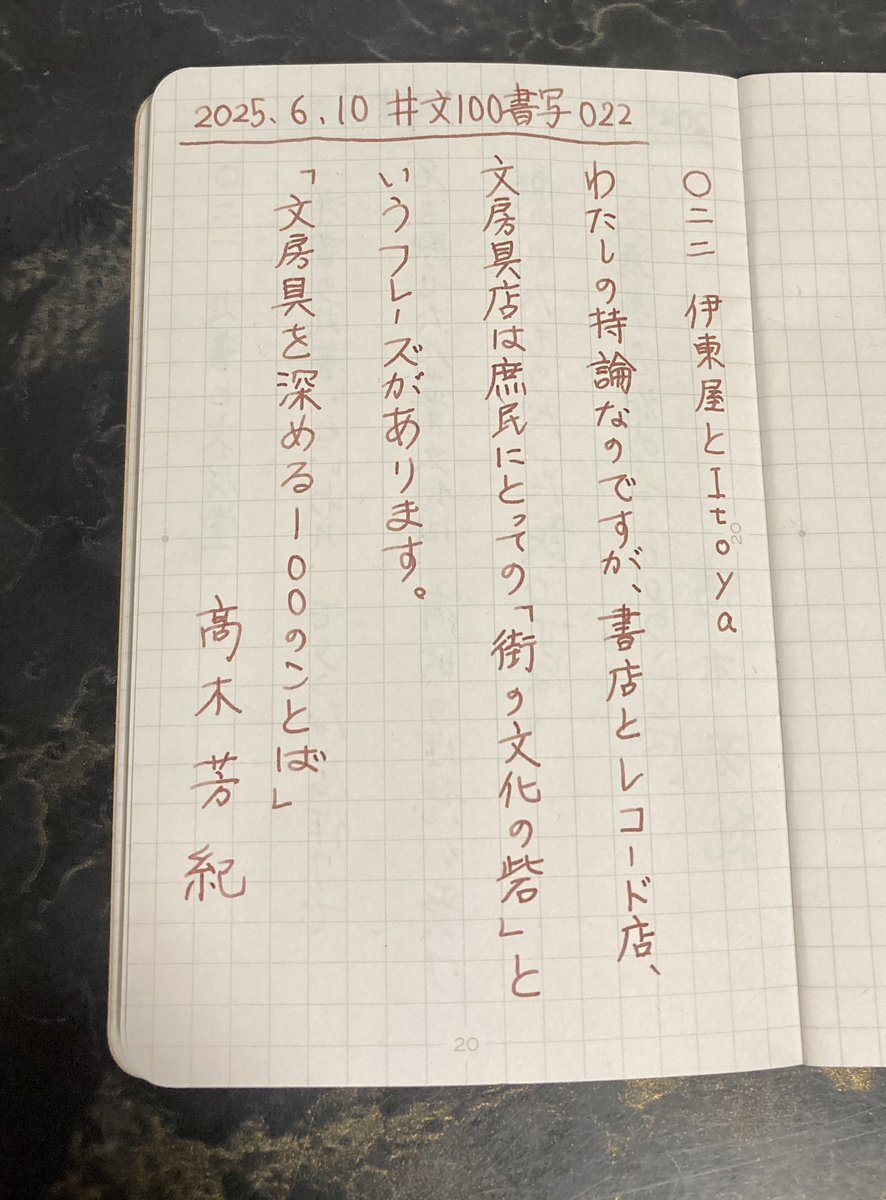 2025.6.10 #文100書写022
〇二二 伊東屋とItoya
わたしの持論なのですが、書店とレコード店、
文房具店は庶民にとっての「街の文化の砦」と
いうフレーズがあります。
「文房具を深める100のことば」
高木芳紀
20
20